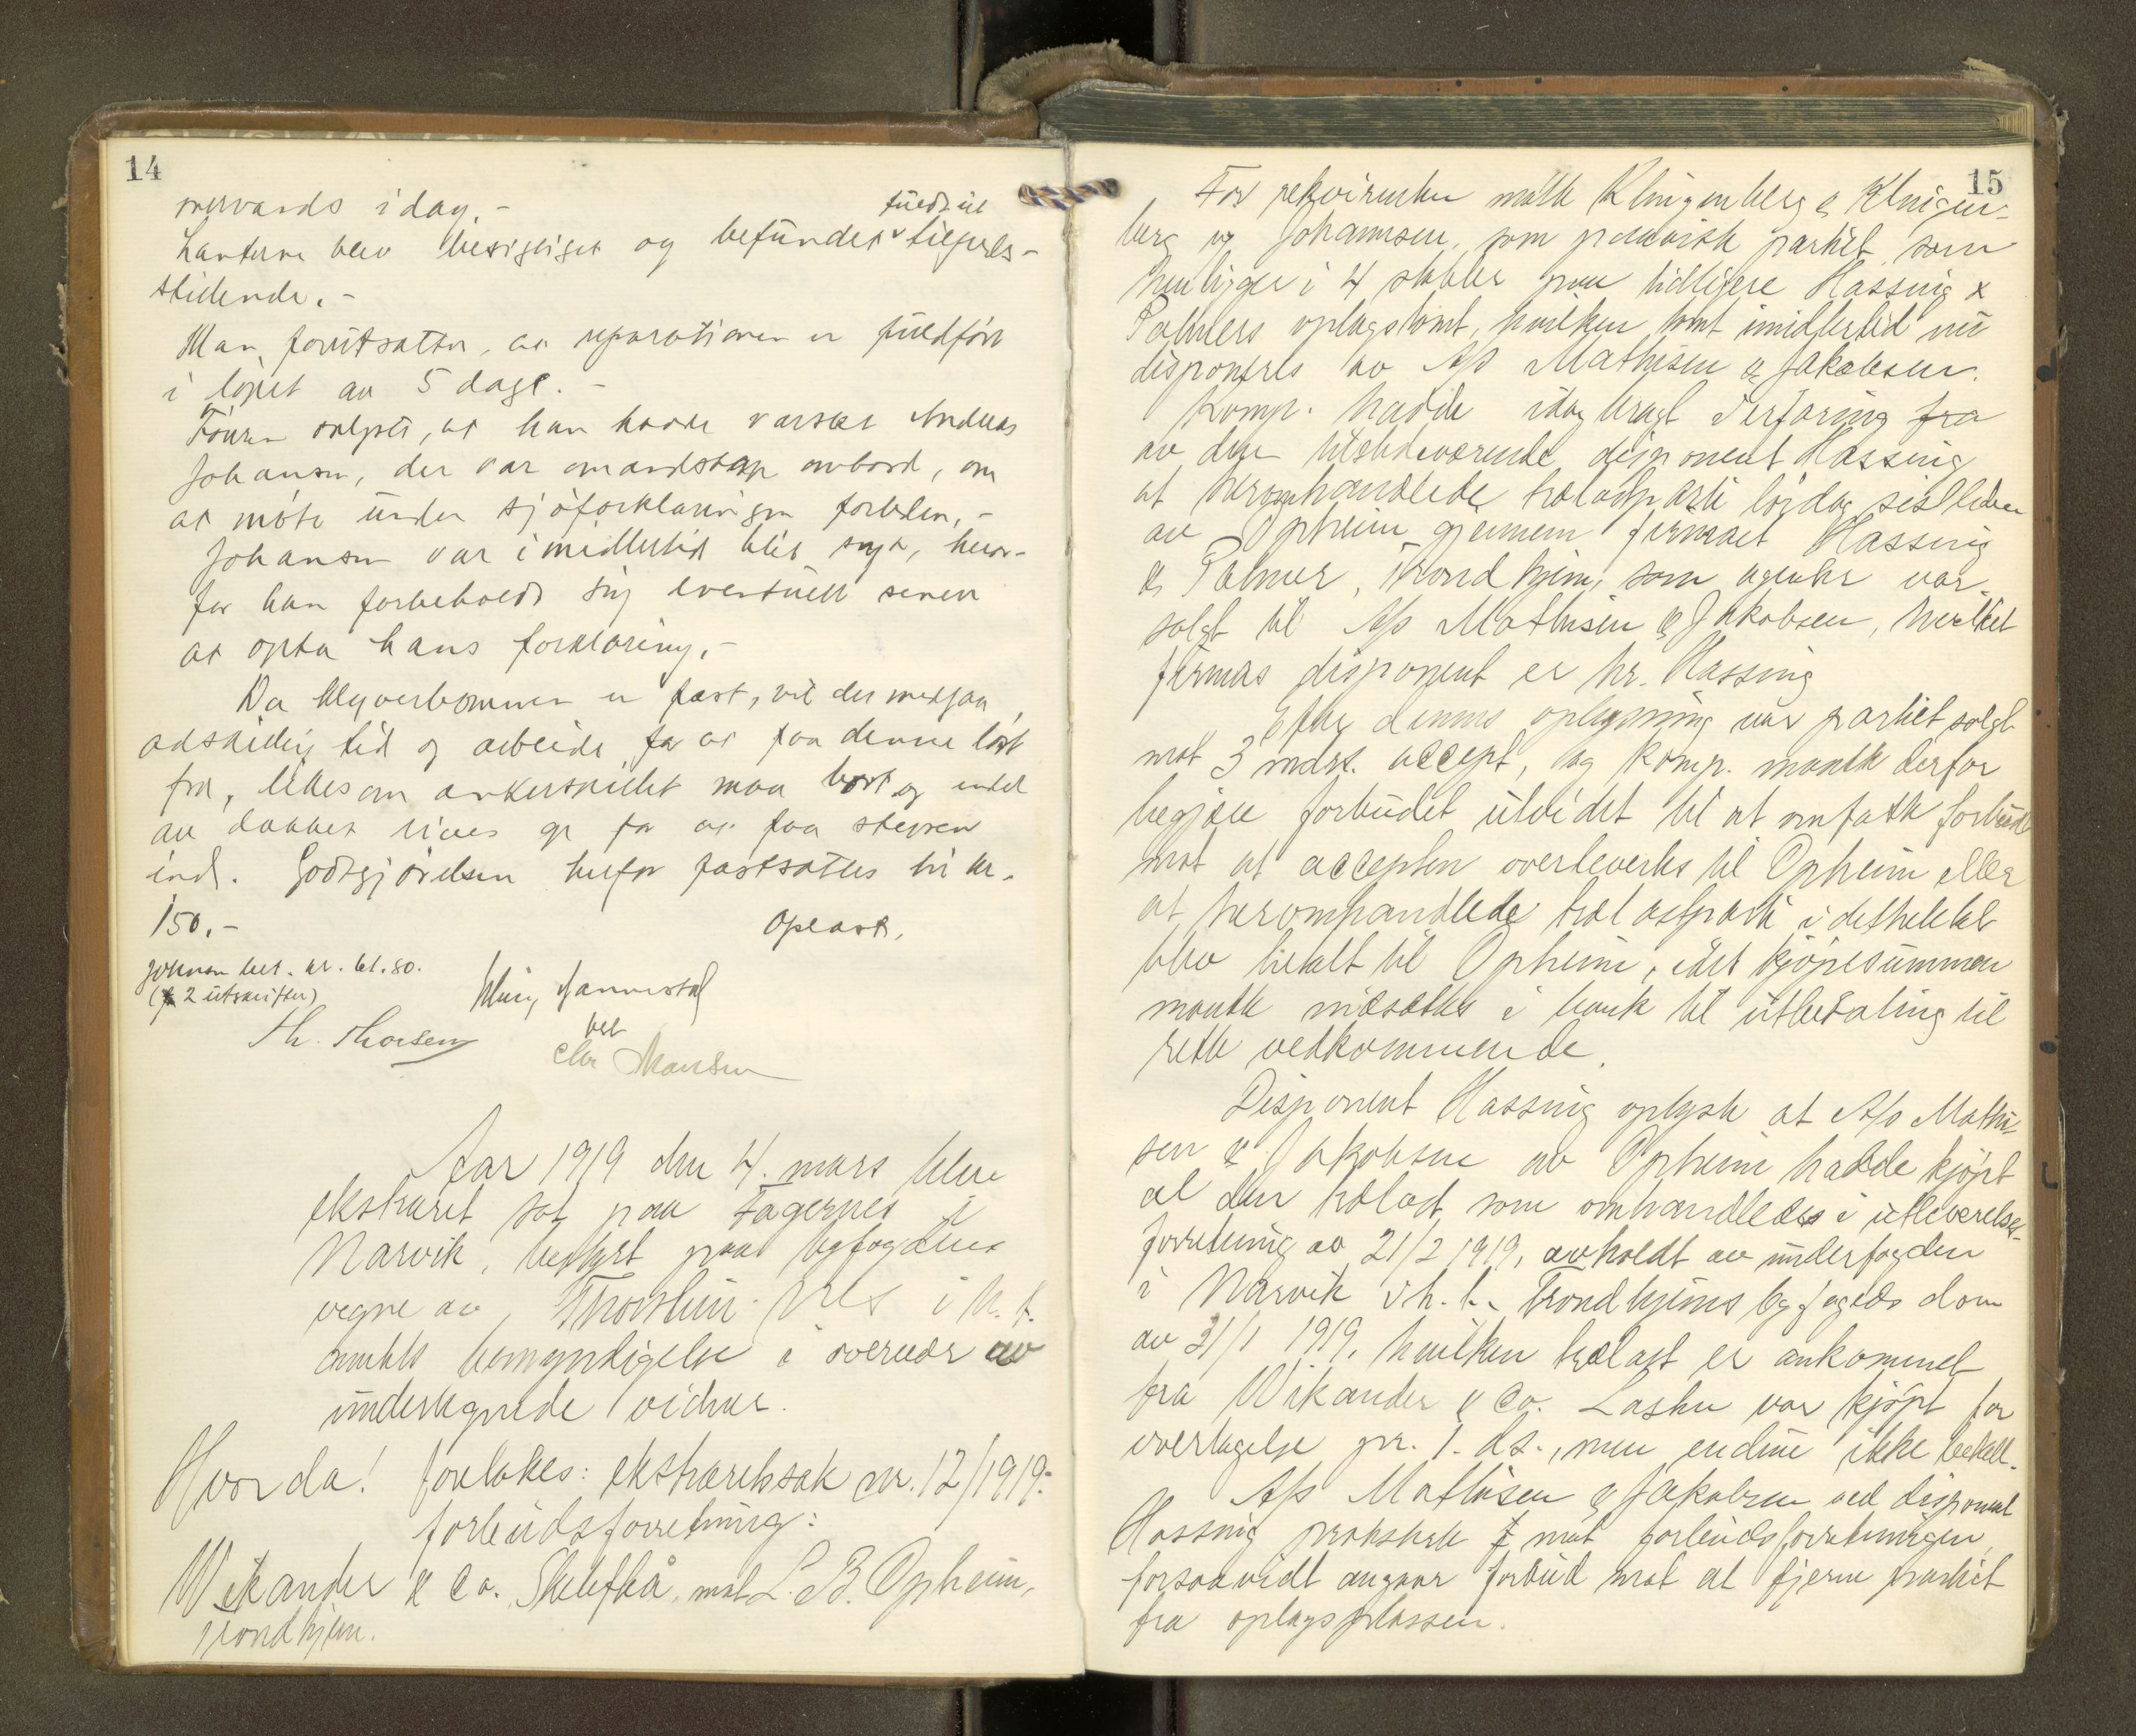 14
nærværds idag.-
fuldt ut
Lanterne blev besigtiget og befundet tilfreds-
stillende.-
Man forutsætter, at reparationen er fuldført
i løpet av 5 dage.-
Føreren oplyste, at han hadde varslet Andreas
Johansen, der var mandskap ombord, om
at møte under sjøforklaringen forleden,-
Johansen var imidlertid blit syk, hvor-
for han forbeholdt sig eventuelt senere
at opta hans forklaring.-
Da klyverbommen er fast, vil der medgaa
adskillig tid og arbeide for at faa denne løst
fra, likesom ankerspillet maa bort og endel
av dækket rives op for at faa stevnen
ind. Godtgjørelsen herfor fastsættes til kr.
150.-
Oplæst,
Johnsen bet. kr. 61.80.
(2 utskrifter)
Th. Thorsen
Chr Hansen
Aar 1919 den 4. mars blev
ekstraret sat paa Fagernes i
Narvik, bestyrt paa byfogdens
vegne av Thorstein i h. t.
amtets bemyndigelse i overvær av
undertegnede vidner.
Hvorda! foretokes: ekstraretssak nr. 12/1919:
forbudsforretning:
Wikander & Co. Skellefteå, mot L. B. Opheim,
Trondhjem.
15
For rekvirenten møtte Klingenberg & Klingen-
berg ved Johannsen, som paaviste partiet, som
henligger i 4 stabler paa tidligere Hassing &
Palmers oplagstomt, hvilken tomt imidlertid nu
disponeres av A/s Mathisen & Jakobsen.
Komp. hadde idag bragt i erfaring fra
av den tilstedeværende disponent Hassing
at heromhandlede trælastparti lørdag sistleden
av Opheim gjennem firmaet Hassing
& Palmer, Trondhjem, som agenter var
solgt til A/s Mathisen & Jakobsen, hvilket
firmas disponent er hr. Hassing
Efter dennes oplysning var partiet solgt
mot 3 mdrs. accept, og komp. maatte derfor
begjære forbudet utvidet til at omfatte forbud
mot at accepten overleveres til Opheim eller
at heromhandlede trælastparti i det hele tat
blev betalt til Opheim, idet kjøpesummen
maatte indsættes i bank til utbetaling til
rette vedkommende.
Disponent Hassing oplyste at A/s Mathi-
sen & Jakobsen av Opheim hadde kjøpt
al den trælast som omhandledes i utleverelses-
forretning av 21/2 1919, avholdt av underfogden
i Narvik i h. t. Trondhjems byfogeds dom
av 31/1 1919, hvilken trælast er ankommet
fra Wikander & Co. Lasten var kjøpt for
overtagelse pr. 1. ds., men endnu ikke betalt.
A/s Mathisen & Jakobsen ved disponent
Hassing protesterte mot forbudsforretningen,
forsaavidt angaar forbud mot at fjerne partiet
fra oplagsplassen.